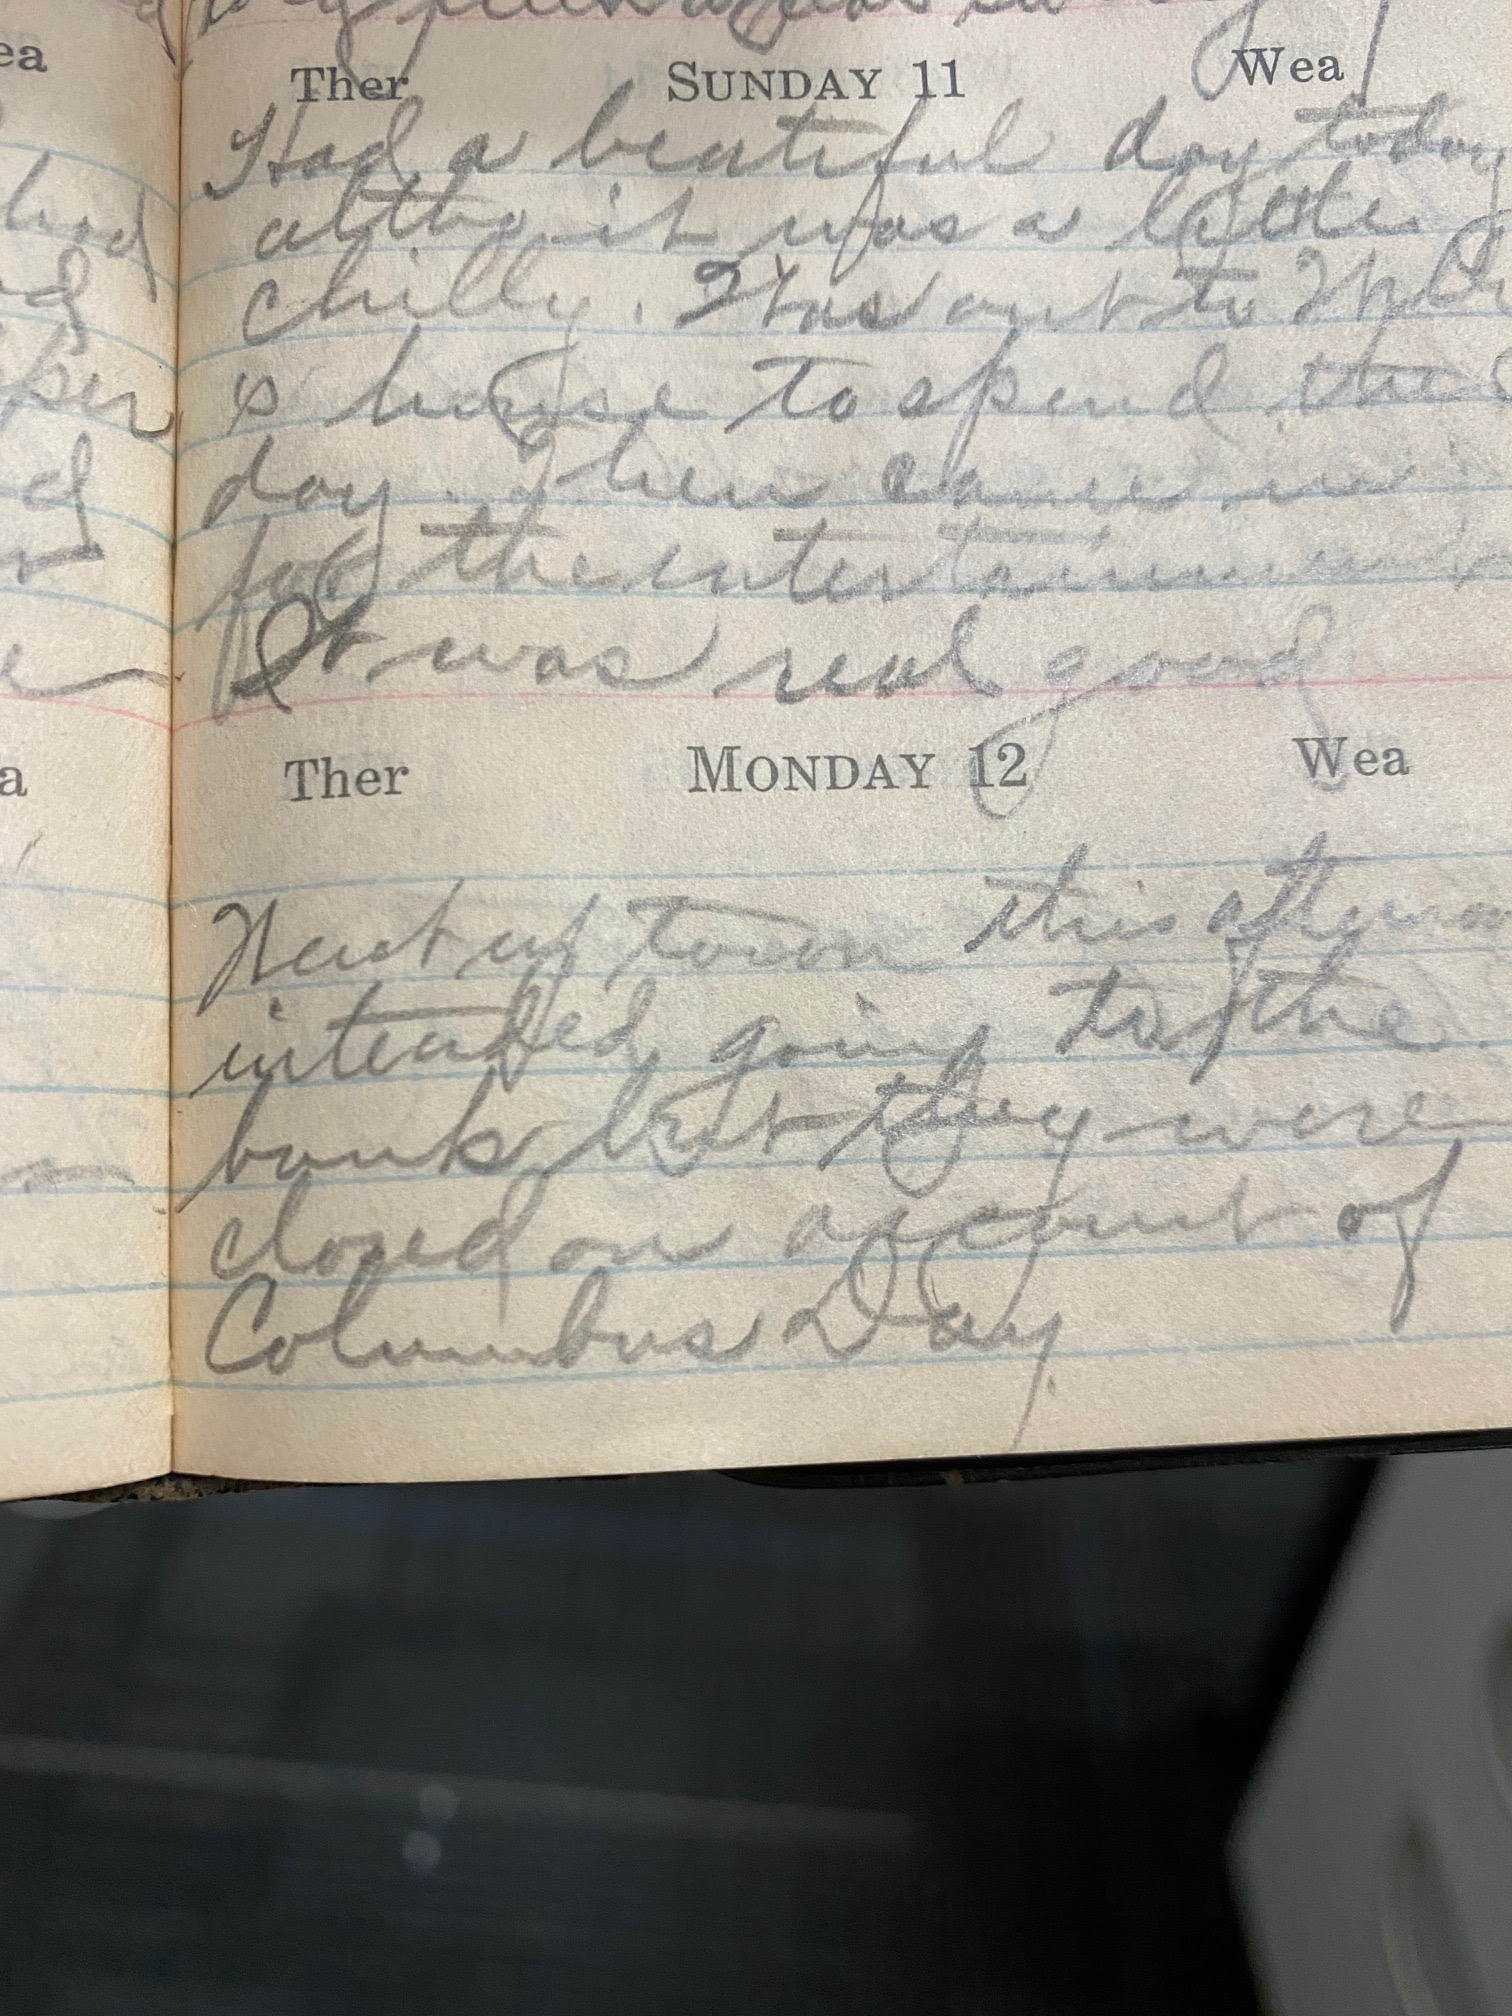 ea
Ther SUNDAY 11 Wea
Had a beatiful day today
altho it was a little
had
chilly. Was out to
s house to spend the
day. Then came in
for the entertainment
It was real good
a
Ther MONDAY 12 Wea
Went up town this afternoo
intended going to the
bank but they were
closed on account of
Columbus Day.